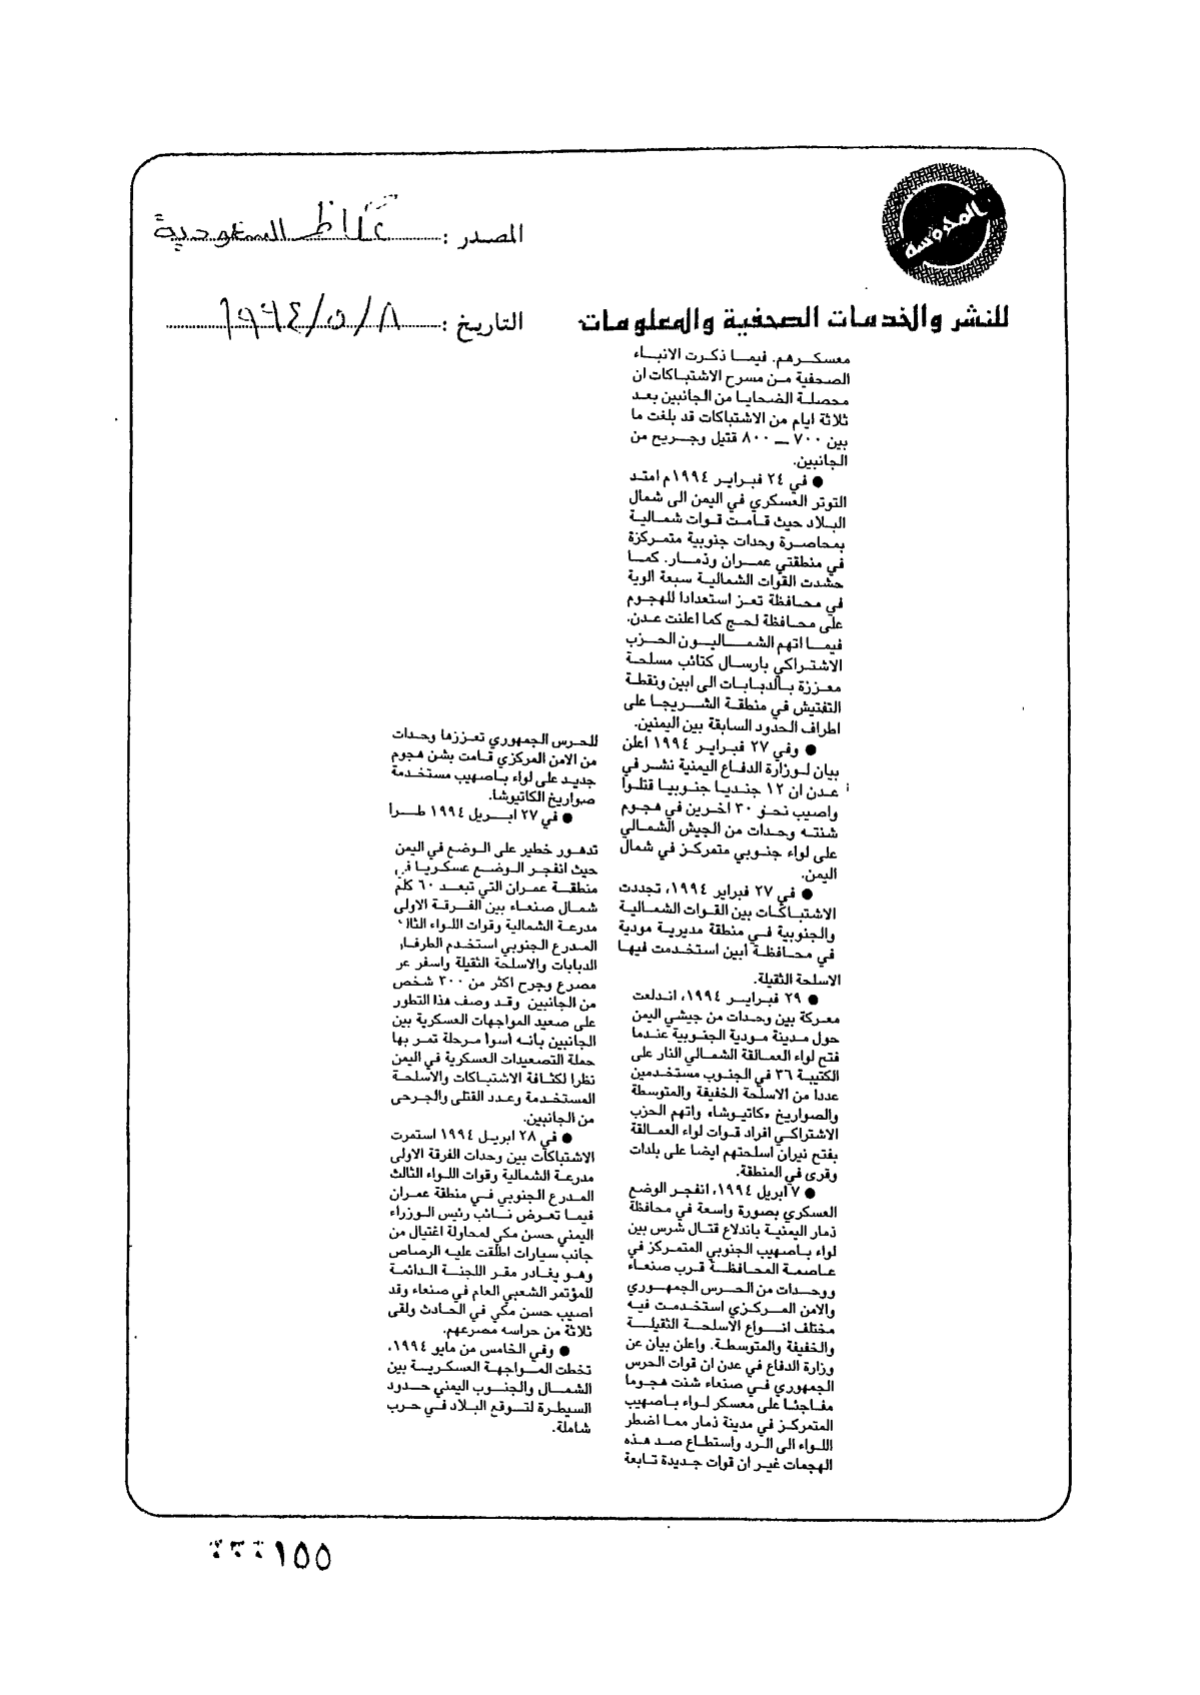 المحروسة
المصدر : عكاظ السعودية
للنشر والخدمات الصحفية والمعلومات
التاريخ : ١٩٩٤/٥/٨
معسكرهم. فيما ذكرت الانباء
الصحفية من مسرح الاشتباكات ان
محصلة الضحايا من الجانبين بعد
ثلاثة ايام من الاشتباكات قد بلغت ما
بين ٧٠٠ ــ ٨٠٠ قتيل وجريح من
الجانبين.
● في ٢٤ فبراير ١٩٩٤م امتد
التوتر العسكري في اليمن الى شمال
البلاد حيث قامت قوات شمالية
بمحاصرة وحدات جنوبية متمركزة
في منطقتي عمران وذمار. كما
حشدت القوات الشمالية سبعة الوية
في محافظة تعز استعدادا للهجوم
على محافظة لحج كما اعلنت عدن.
فيما اتهم الشماليون الحزب
الاشتراكي بارسال كتائب مسلحة
معززة بالدبابات الى ابين ونقطة
التفتيش في منطقة الشريجا على
اطراف الحدود السابقة بين اليمنين.
● وفي ٢٧ فبراير ١٩٩٤ اعلن
بيان لوزارة الدفاع اليمنية نشر في
عدن ان ١٢ جنديا جنوبيا قتلوا
واصيب نحو ٣٠ آخرين في هجوم
شنته وحدات من الجيش الشمالي
على لواء جنوبي متمركز في شمال
اليمن.
● في ٢٧ فبراير ١٩٩٤، تجددت
الاشتباكات بين القوات الشمالية
والجنوبية في منطقة مديرية مودية
في محافظة أبين استخدمت فيها
الاسلحة الثقيلة.
● ٢٩ فبراير ١٩٩٤، اندلعت
معركة بين وحدات من جيشي اليمن
حول مدينة مودية الجنوبية عندما
فتح لواء العمالقة الشمالي النار على
الكتيبة ٣٦ في الجنوب مستخدمين
عددا من الاسلحة الخفيفة والمتوسطة
والصواريخ «كاتيوشا» واتهم الحزب
الاشتراكي افراد قوات لواء العمالقة
بفتح نيران اسلحتهم ايضا على بلدات
وقرى في المنطقة.
● ٧ ابريل ١٩٩٤، انفجر الوضع
العسكري بصورة واسعة في محافظة
ذمار اليمنية باندلاع قتال شرس بين
لواء باصهيب الجنوبي المتمركز في
عاصمة المحافظة قرب صنعاء
ووحدات من الحرس الجمهوري
والامن المركزي استخدمت فيه
مختلف انواع الاسلحة الثقيلة
والخفيفة والمتوسطة. واعلن بيان عن
وزارة الدفاع في عدن ان قوات الحرس
الجمهوري في صنعاء شنت هجوما
مفاجئا على معسكر لواء باصهيب
المتمركز في مدينة ذمار مما اضطر
اللواء الى الرد واستطاع صد هذه
الهجمات غير ان قوات جديدة تابعة
للحرس الجمهوري تعززها وحدات
من الامن المركزي قامت بشن هجوم
جديد على لواء باصهيب مستخدمة
صواريخ الكاتيوشا.
● في ٢٧ ابريل ١٩٩٤ طرأ
تدهور خطير على الوضع في اليمن
حيث انفجر الوضع عسكريا في
منطقة عمران التي تبعد ٦٠ كلم
شمال صنعاء بين الفرقة الاولى
مدرعة الشمالية وقوات اللواء
المدرع الجنوبي استخدم
الدبابات والاسلحة الثقيلة واسفر عن
مصرع وجرح اكثر من ٣٠٠ شخص
من الجانبين وقد وصف هذا التطور
على صعيد المواجهات العسكرية بين
الجانبين بانه اسوأ مرحلة تمر بها
حملة التصعيدات العسكرية في اليمن
نظرا لكثافة الاشتباكات والأسلحة
المستخدمة وعدد القتلى والجرحى
من الجانبين.
● في ٢٨ ابريل ١٩٩٤ استمرت
الاشتباكات بين وحدات الفرقة الاولى
مدرعة الشمالية وقوات اللواء الثالث
المدرع الجنوبي في منطقة عمران
فيما تعرض نائب رئيس الوزراء
اليمني حسن مكي لمحاولة اغتيال من
جانب سيارات اطلقت عليه الرصاص
وهو يغادر مقر اللجنة الدائمة
للمؤتمر الشعبي العام في صنعاء وقد
اصيب حسن مكي في الحادث ولقى
ثلاثة من حراسه مصرعهم.
● وفي الخامس من مايو ١٩٩٤،
تخطت المواجهة العسكرية بين
الشمال والجنوب اليمني حدود
السيطرة لتوقع البلاد في حرب
شاملة.
١٥٥